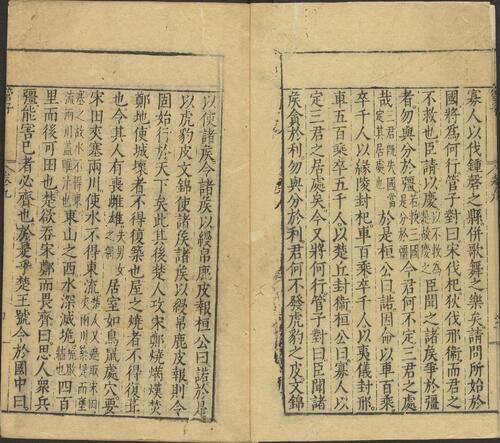 寡人以伐鍾磬之縣併歌舞之樂矣請問所始於
國將為何行管子對曰宋伐杞狄伐邢衞而君之
不救也臣請以慶以不救為是故慶之臣聞之諸矦爭於彊
者勿與分於彊若救三國是分於彊今君何不定三君之處
哉三君既失國當定其居處於是桓公曰諾因命以車百乘
卒千人以緣陵封杞車百乘卒千人以夷儀封邢
車五百乘卒五千人以楚丘封衞桓公曰寡人以
定三君之居處矣今又將何行管子對曰臣聞諸
矦貪於利勿與分於利君何不發虎豹之皮文錦
以使諸矦令諸矦以縵帛鹿皮報桓公曰諾於是
以虎豹皮文錦使諸矦諸矦以縵帛鹿皮報則令
固始行於天下矣此其後楚人攻宋鄭燒焫熯焚
鄭地使城壞者不得復築也屋之燒者不得復葺
也令其人有喪雌雄失男女之偶居室如鳥鼠處穴要
宋田夾塞兩川使水不得東流楚人又遮取宋田夾兩川築堤而壅
塞之故水不得東流兩川蓋雎汴也東山之西水深滅垝垝敗牆也四百
里而後可田也楚欲吞宋鄭而畏齊曰思人眾兵
彊能害己者必齊也於是乎楚王號令於國中曰